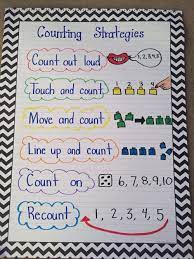 Counting Strategies
Count out loud 1, 2, 3, 4, 5
Touch and count 1 2 3 4
Move and count
Line up and count
Count on 6, 7, 8, 9, 10
Recount 1, 2, 3, 4, 5